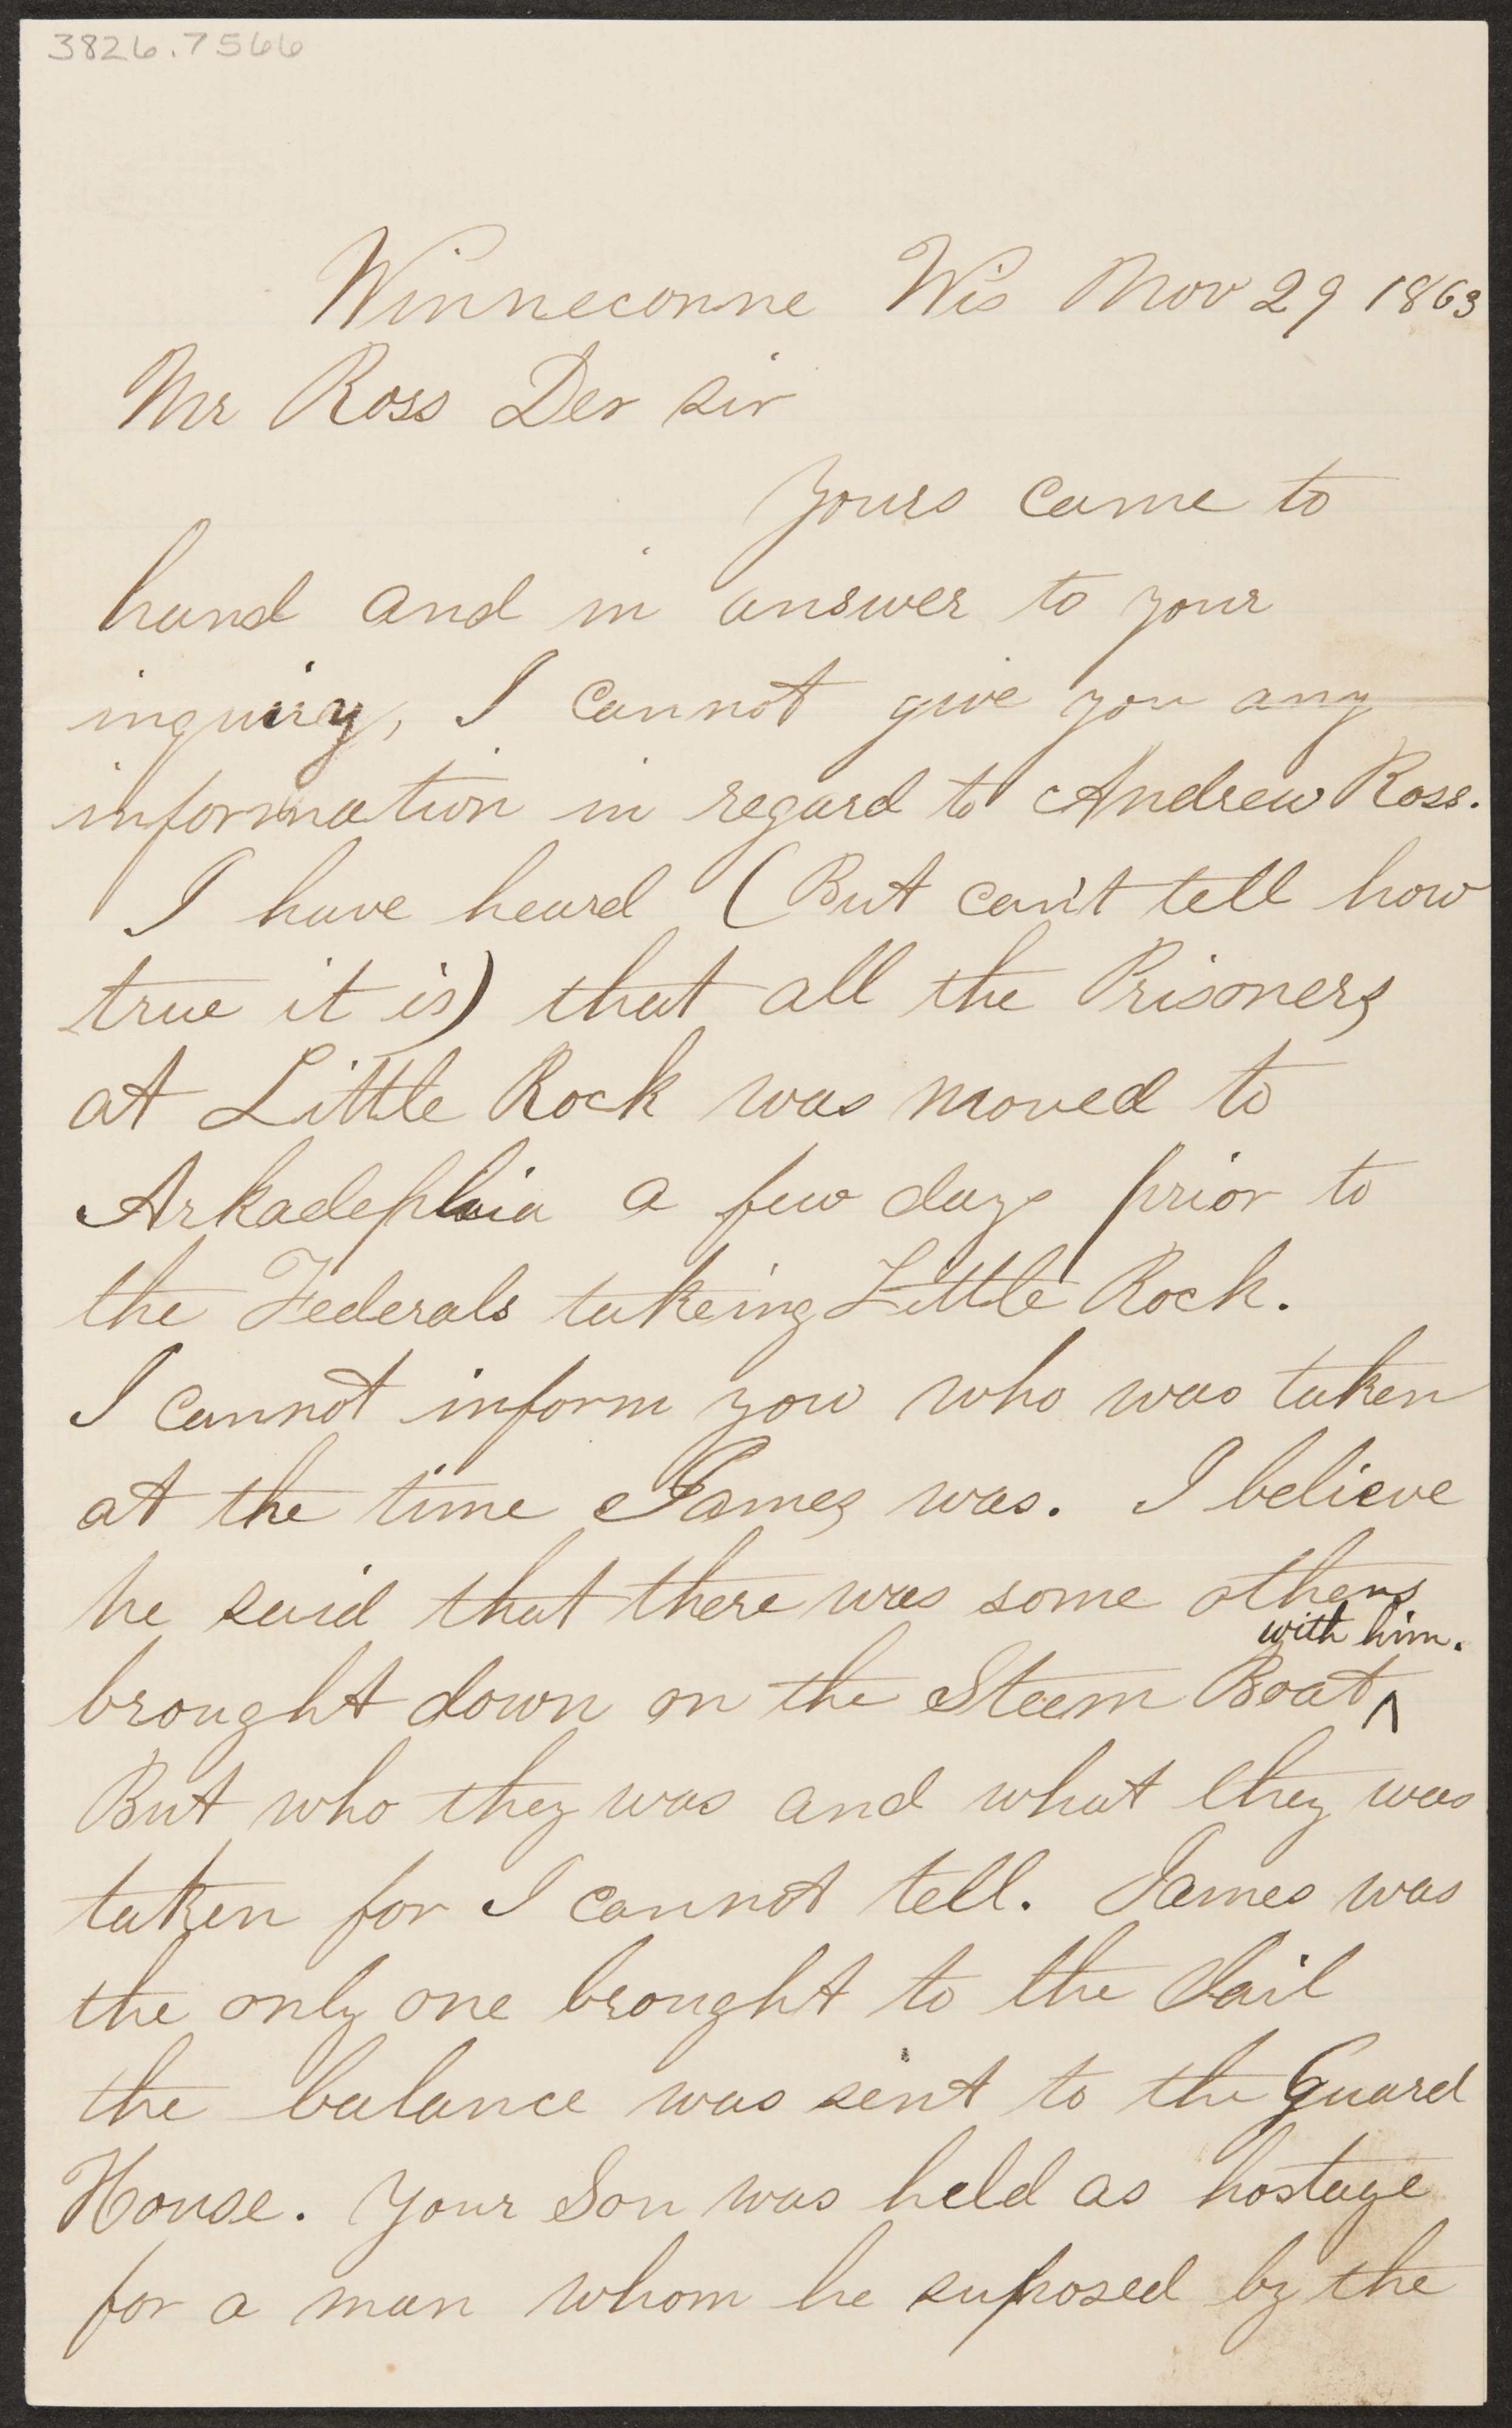 3826.7566
Winneconne Wis Nov 29 1863
Mr Ross Der sir
Yours came to
hand and in answer to your
inquiry, I cannot give you any
information in regard to Andrew Ross.
I have heard (But can't tell how
true it is) that all the Prisoners
at Little Rock was moved to
Arkadephia a few days prior to
the Federals takeing Little Rock.
I cannot inform you who was taken
at the time James was. I believe
he said that there was some others
with him.
brought down on the Steem Boat ^
But who they was and what they was
taken for I cannot tell. James was
the only one brought to the Jail
the balance was sent to the Guard
House. Your Son was held as hostage
for a man whom he suposed by the